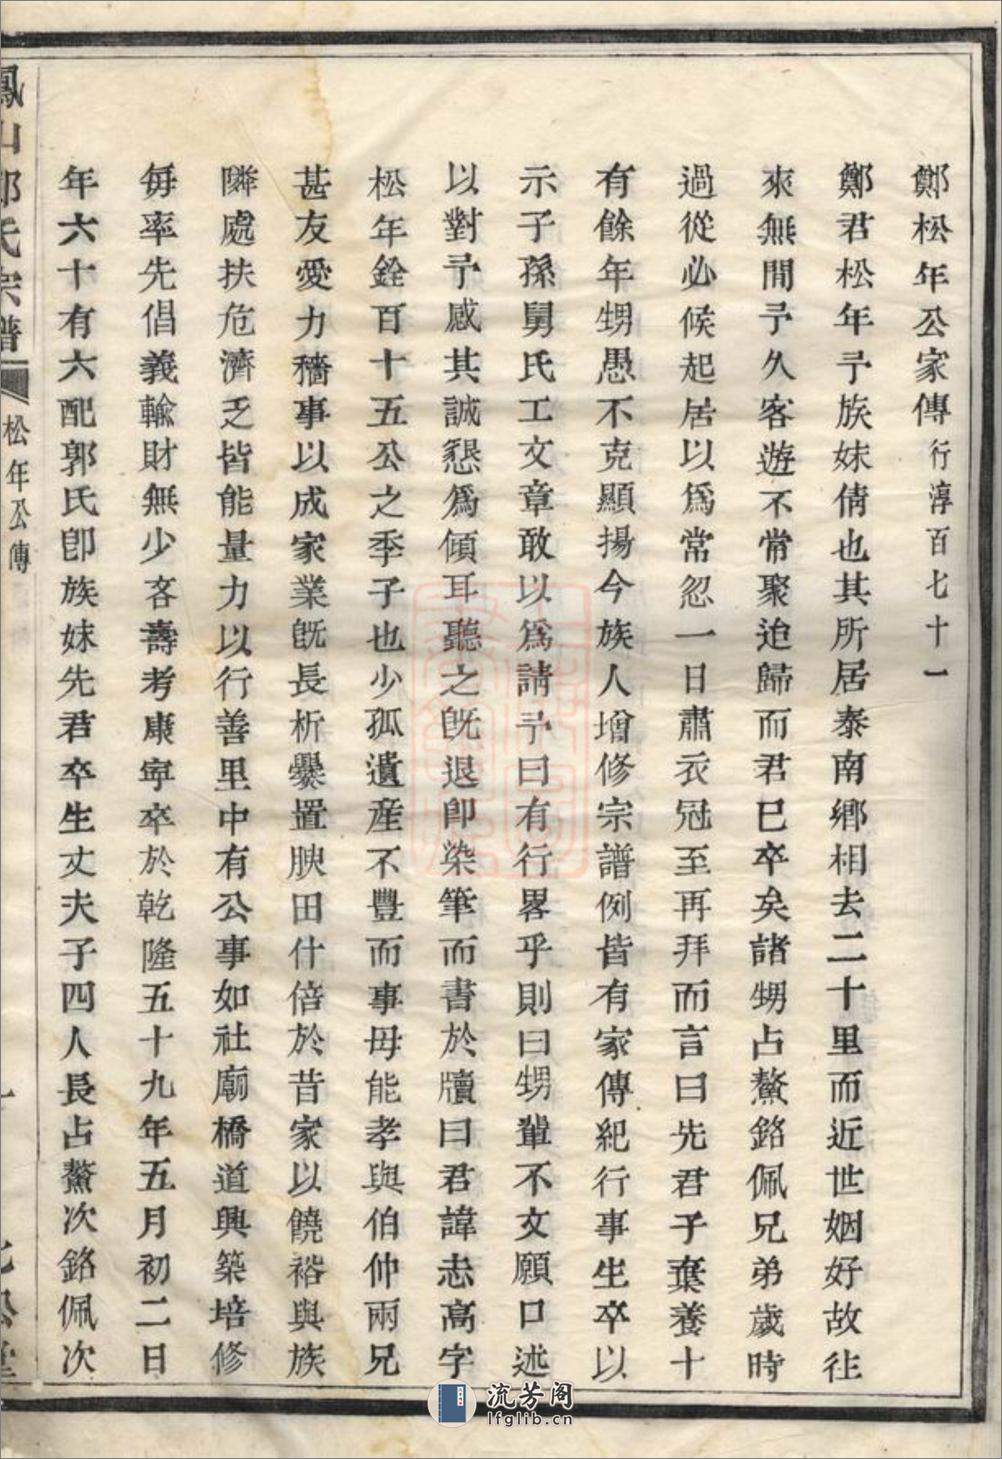 鄭松年公家傳行淳百七十一
鄭君松年予族妹倩也其所居泰南鄉相去二十里而近世姻好故往
來無間予久客遊不常聚迨歸而君已卒矣諸甥占鰲銘佩兄弟歲時
過從必候起居以爲常忽一日肅衣冠至再拜而言曰先君子棄養十
有餘年甥愚不克顯揚今族人增修宗譜例皆有家傳紀行事生卒以
示子孫舅氏工文章敢以爲請予曰有行畧乎則曰甥輩不文願口述
以對予感其誠懇爲傾耳聽之既退卽染筆而書於牘曰君諱志高字
松年銓百十五公之季子也少孤遺産不豐而事母能孝與伯仲兩兄
甚友愛力穡事以成家業旣長析爨置腴田什倍於昔家以饒裕與族
隣處扶危濟乏皆能量力以行善里中有公事如社廟橋道興築培修
每率先倡義輸財無少吝壽考康寧卒於乾隆五十九年五月初二日
年六十有六配郭氏卽族妹先君卒生丈夫子四人長占鰲次銘佩次
鳳山鄭氏宗譜
松年公傳
流芳阁
lfglib.cn